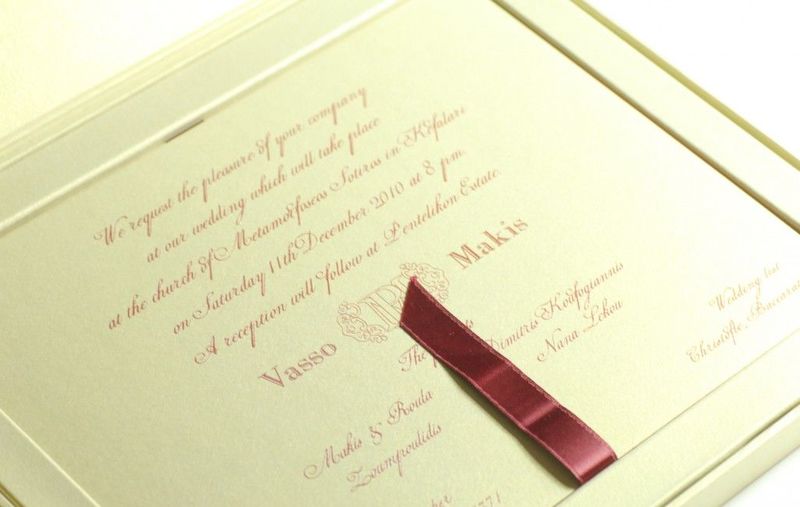 We request the pleasure of your company
at our wedding which will take place
at the church of Metamorfoseos Sotiros in Kefalari
on Saturday 11th December 2010 at 8 p.m.
A reception will follow at Pentelikon Estate.
Vasso Makis
The
Makis & Roula
Zoumproulidis
Dimitris Koufogiannis
Nana Lekou
Wedding list
Christofle, Baccarat